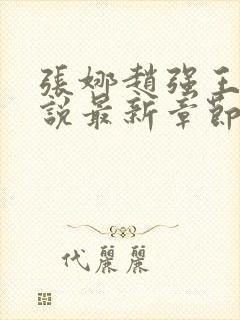 張娜趙强王
說最新章節
代麗麗